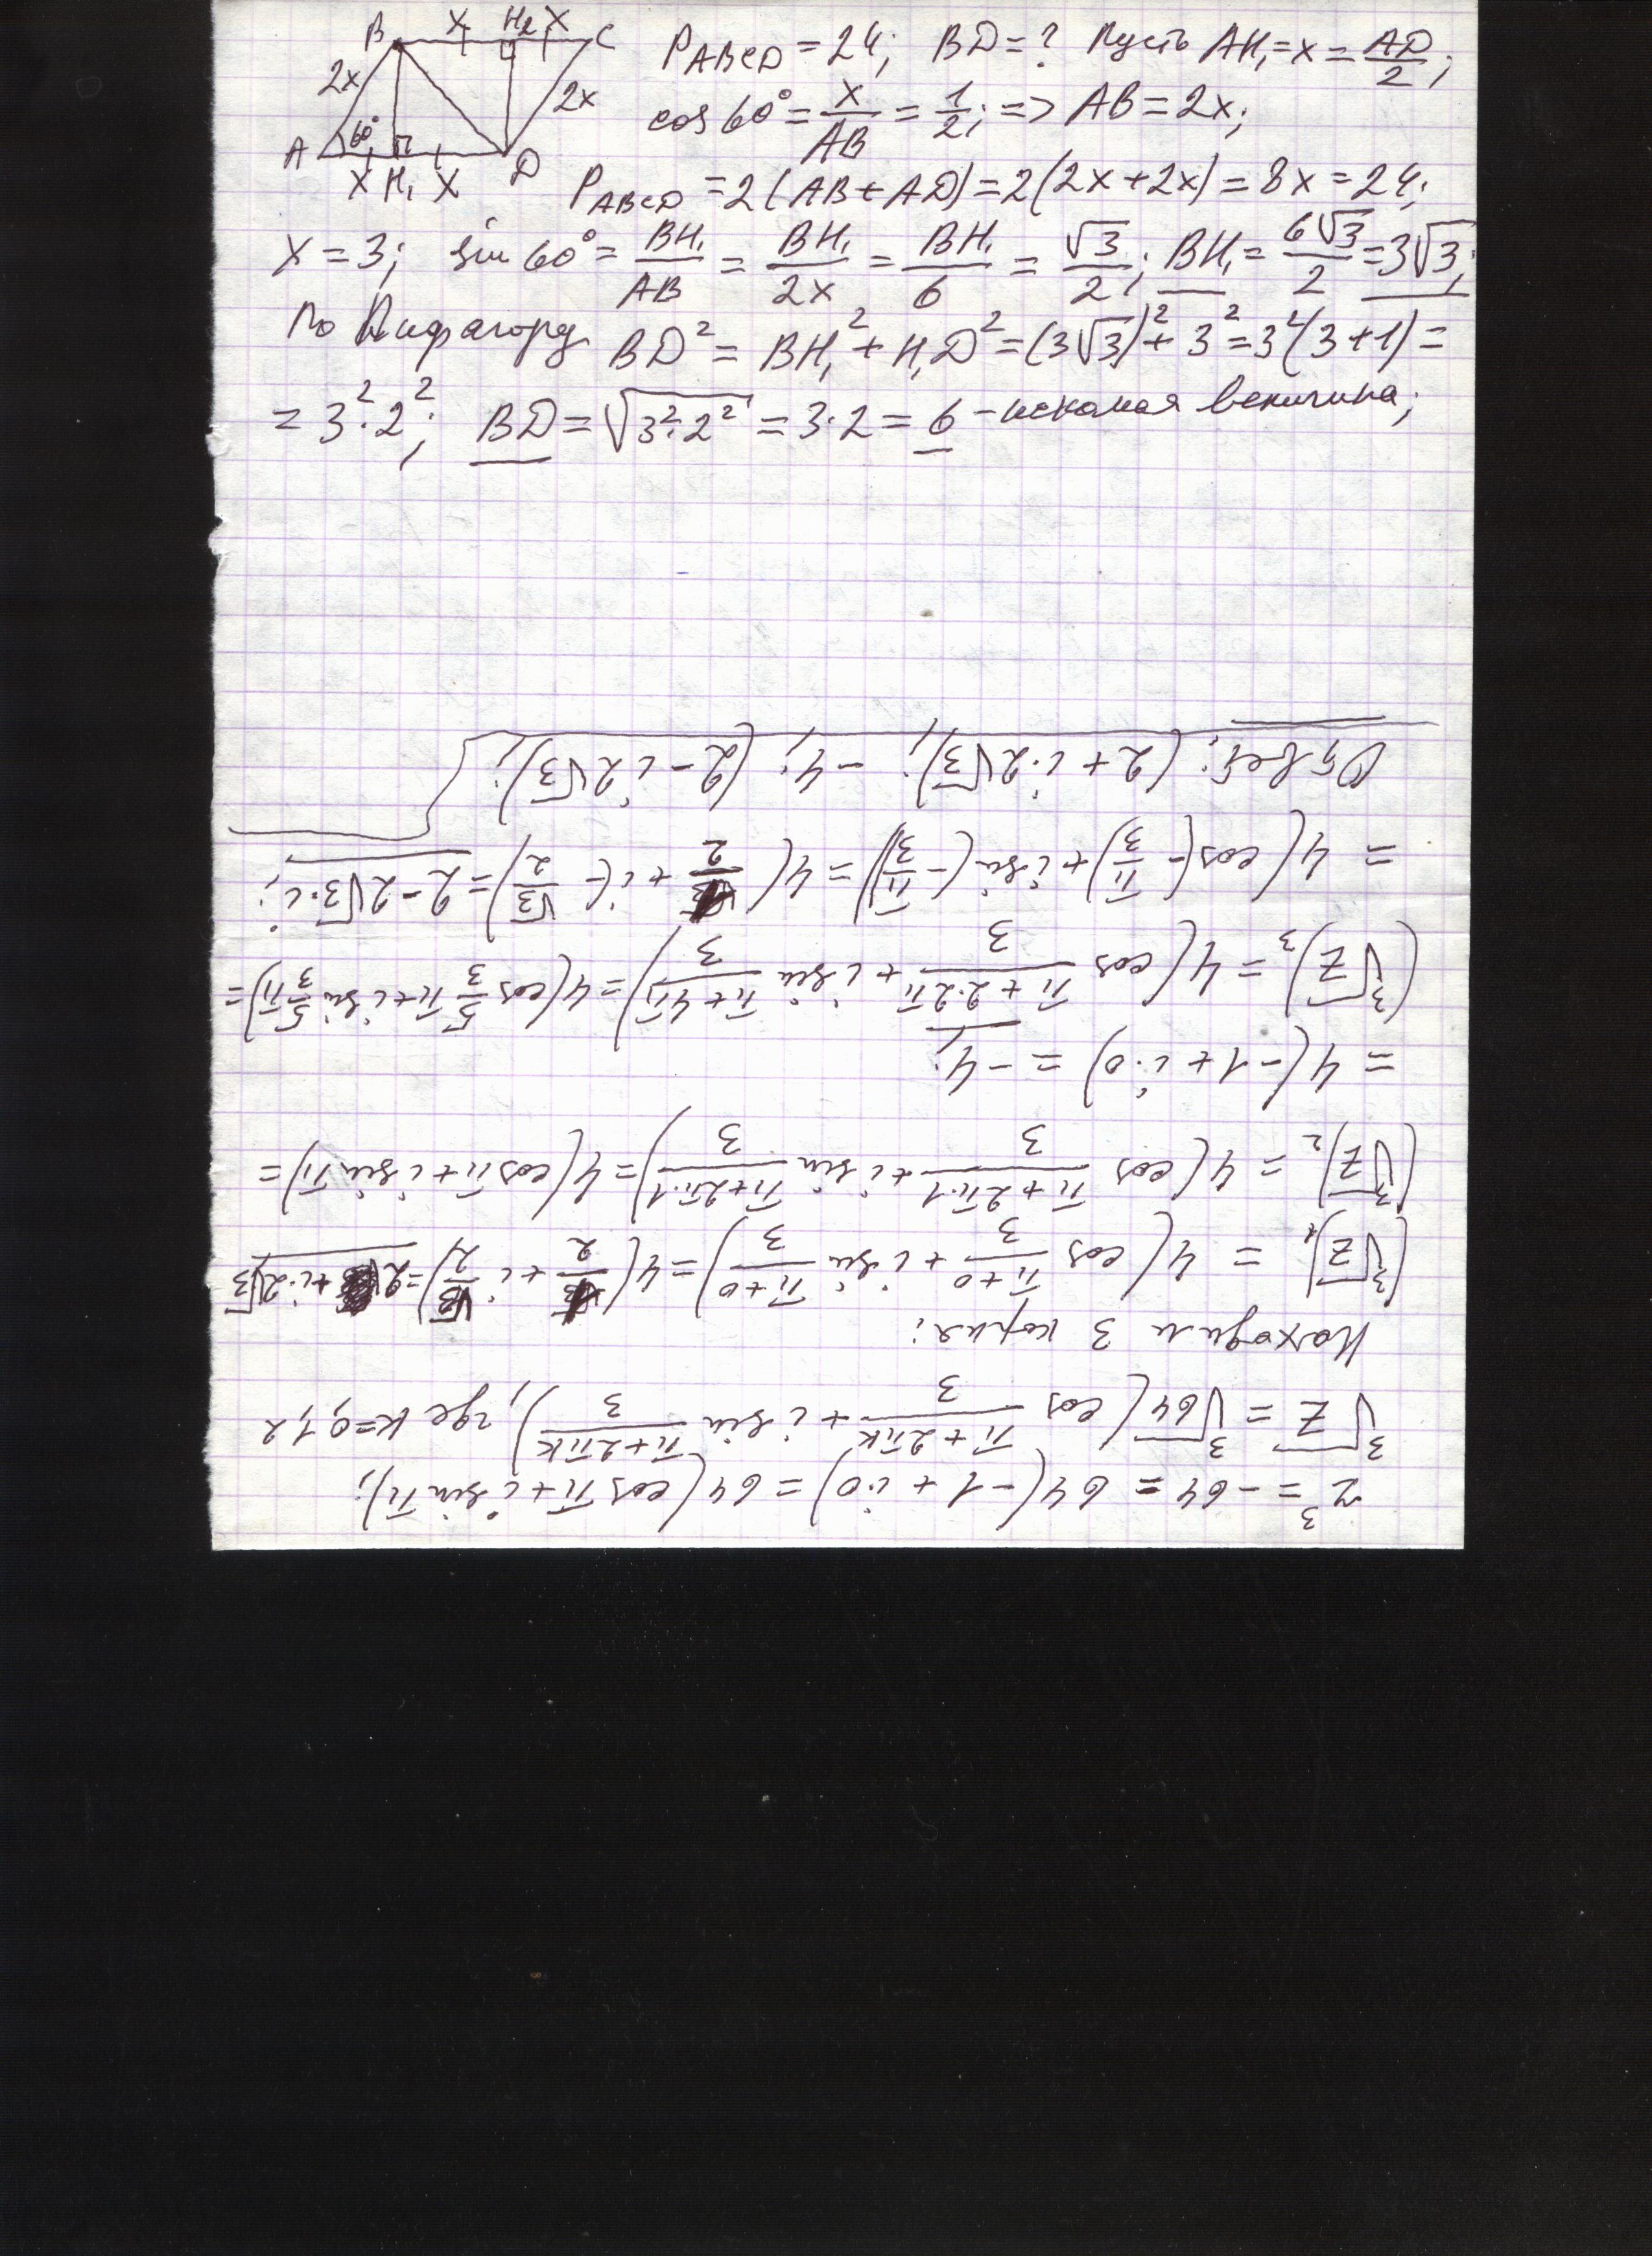 B X H₂ X C
2x 2x
A 60° D
X H₁ X
P_ABCD = 24; BD = ? Пусть AH₁ = x = AD/2;
cos 60° = x/AB = 1/2; => AB = 2x;
P_ABCD = 2(AB + AD) = 2(2x + 2x) = 8x = 24;
x = 3; sin 60° = BH₁/AB = BH₁/2x = BH₁/6 = √3/2; BH₁ = 6√3/2 = 3√3;
По Пифагору BD² = BH₁² + H₁D² = (3√3)² + 3² = 3²(3+1) =
= 3²·2²; BD = √(3²·2²) = 3·2 = 6 – искомая величина;
z³ = -64 = 64(-1 + i·0) = 64(cos π + i sin π);
³√z = ³√64 (cos (π+2πk)/3 + i sin (π+2πk)/3), где k = 0,1,2
Находим 3 корня:
(³√z)₁ = 4(cos (π+0)/3 + i sin (π+0)/3) = 4(1/2 + i √3/2) = 2 + i·2√3
(³√z)₂ = 4(cos (π+2π·1)/3 + i sin (π+2π·1)/3) = 4(cos π + i sin π) =
= 4(-1 + i·0) = -4;
(³√z)₃ = 4(cos (π+2·2π)/3 + i sin (π+4π)/3) = 4(cos 5/3 π + i sin 5/3 π) =
= 4(cos(-π/3) + i sin(-π/3)) = 4(1/2 + i(-√3/2)) = 2 - 2√3·i;
Ответ: (2 + i·2√3); -4; (2 - i2√3);